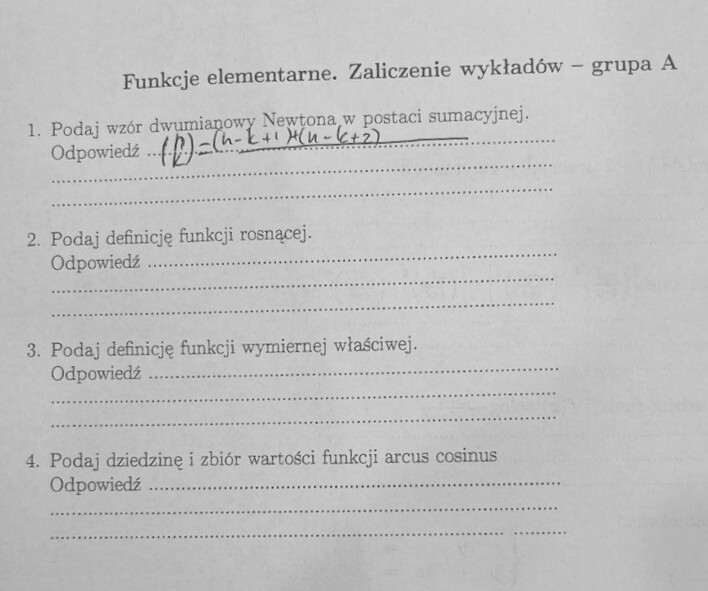 Funkcje elementarne. Zaliczenie wykładów – grupa A
1. Podaj wzór dwumianowy Newtona w postaci sumacyjnej.
Odpowiedź ... (n k) = (n-k+1)+(n-k+2)
2. Podaj definicję funkcji rosnącej.
Odpowiedź ...
3. Podaj definicję funkcji wymiernej właściwej.
Odpowiedź ...
4. Podaj dziedzinę i zbiór wartości funkcji arcus cosinus
Odpowiedź ...